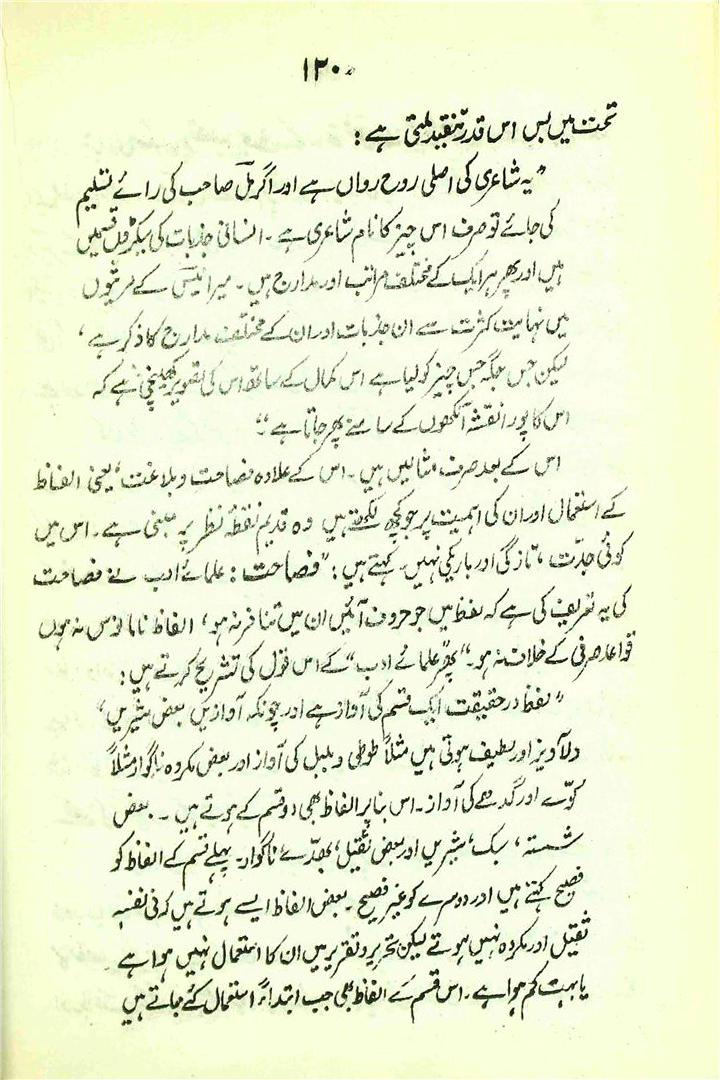 ۱۲۰
تحت میں بس اس قدر تنقید ملتی ہے :
”یہ شاعری کی اصلی روح رواں ہے اور اگر مل صاحب کی رائے تسلیم
کی جائے تو صرف اس چیز کا نام شاعری ہے ۔ انسانی جذبات کی سیکڑوں قسمیں
ہیں اور پھر ہر ایک کے مختلف مراتب اور مدارج ہیں ۔ میر انیسؔ کے مرثیوں
میں نہایت کثرت سے ان جذبات اور ان کے مختلف مدارج کا ذکر ہے ،
لیکن جس جگہ جس چیز کو لیا ہے اس کمال کے ساتھ اس کی تصویر کھینچی ہے کہ
اس کا پورا نقشہ آنکھوں کے سامنے پھر جاتا ہے “۔
اس کے بعد صرف مثالیں ہیں ۔ اس کے علاوہ فصاحت و بلاغت ، یعنی الفاظ
کے استعمال اور ان کی اہمیت پر جو کچھ لکھتے ہیں وہ قدیم نقطۂ نظر پر مبنی ہے ۔ اس میں
کوئی جدّت ، تازگی اور باریکی نہیں ۔ کہتے ہیں : ”فصاحت : علمائے ادب نے فصاحت
کی یہ تعریف کی ہے کہ لفظ میں جو حروف آئیں ان میں تنافر نہ ہو ، الفاظ نامانوس نہ ہوں
قواعد صرفی کے خلاف نہ ہو ۔“ پھر ”علمائے ادب“ کے اس قول کی تشریح کرتے ہیں :
”لفظ در حقیقت ایک قسم کی آواز ہے اور چونکہ آوازیں بعض شیریں“
دلآویز اور لطیف ہوتی ہیں مثلاً طوطی و بلبل کی آواز اور بعض مکروہ ناگوار مثلاً
کوّے اور گدھے کی آواز ۔ اس بنا پر الفاظ بھی دو قسم کے ہوتے ہیں ۔ بعض
شستہ ، سبک ، شیریں اور بعض ثقیل ، بھدّے ، ناگوار ۔ پہلے قسم کے الفاظ کو
فصیح کہتے ہیں اور دوسرے کو غیر فصیح ۔ بعض الفاظ ایسے ہوتے ہیں کہ فی نفسہٖ
ثقیل اور مکروہ نہیں ہوتے لیکن تحریر و تقریر میں ان کا استعمال نہیں ہوا ہے
یا بہت کم ہوا ہے ۔ اس قسم کے الفاظ بھی جب ابتداءً استعمال کئے جاتے ہیں